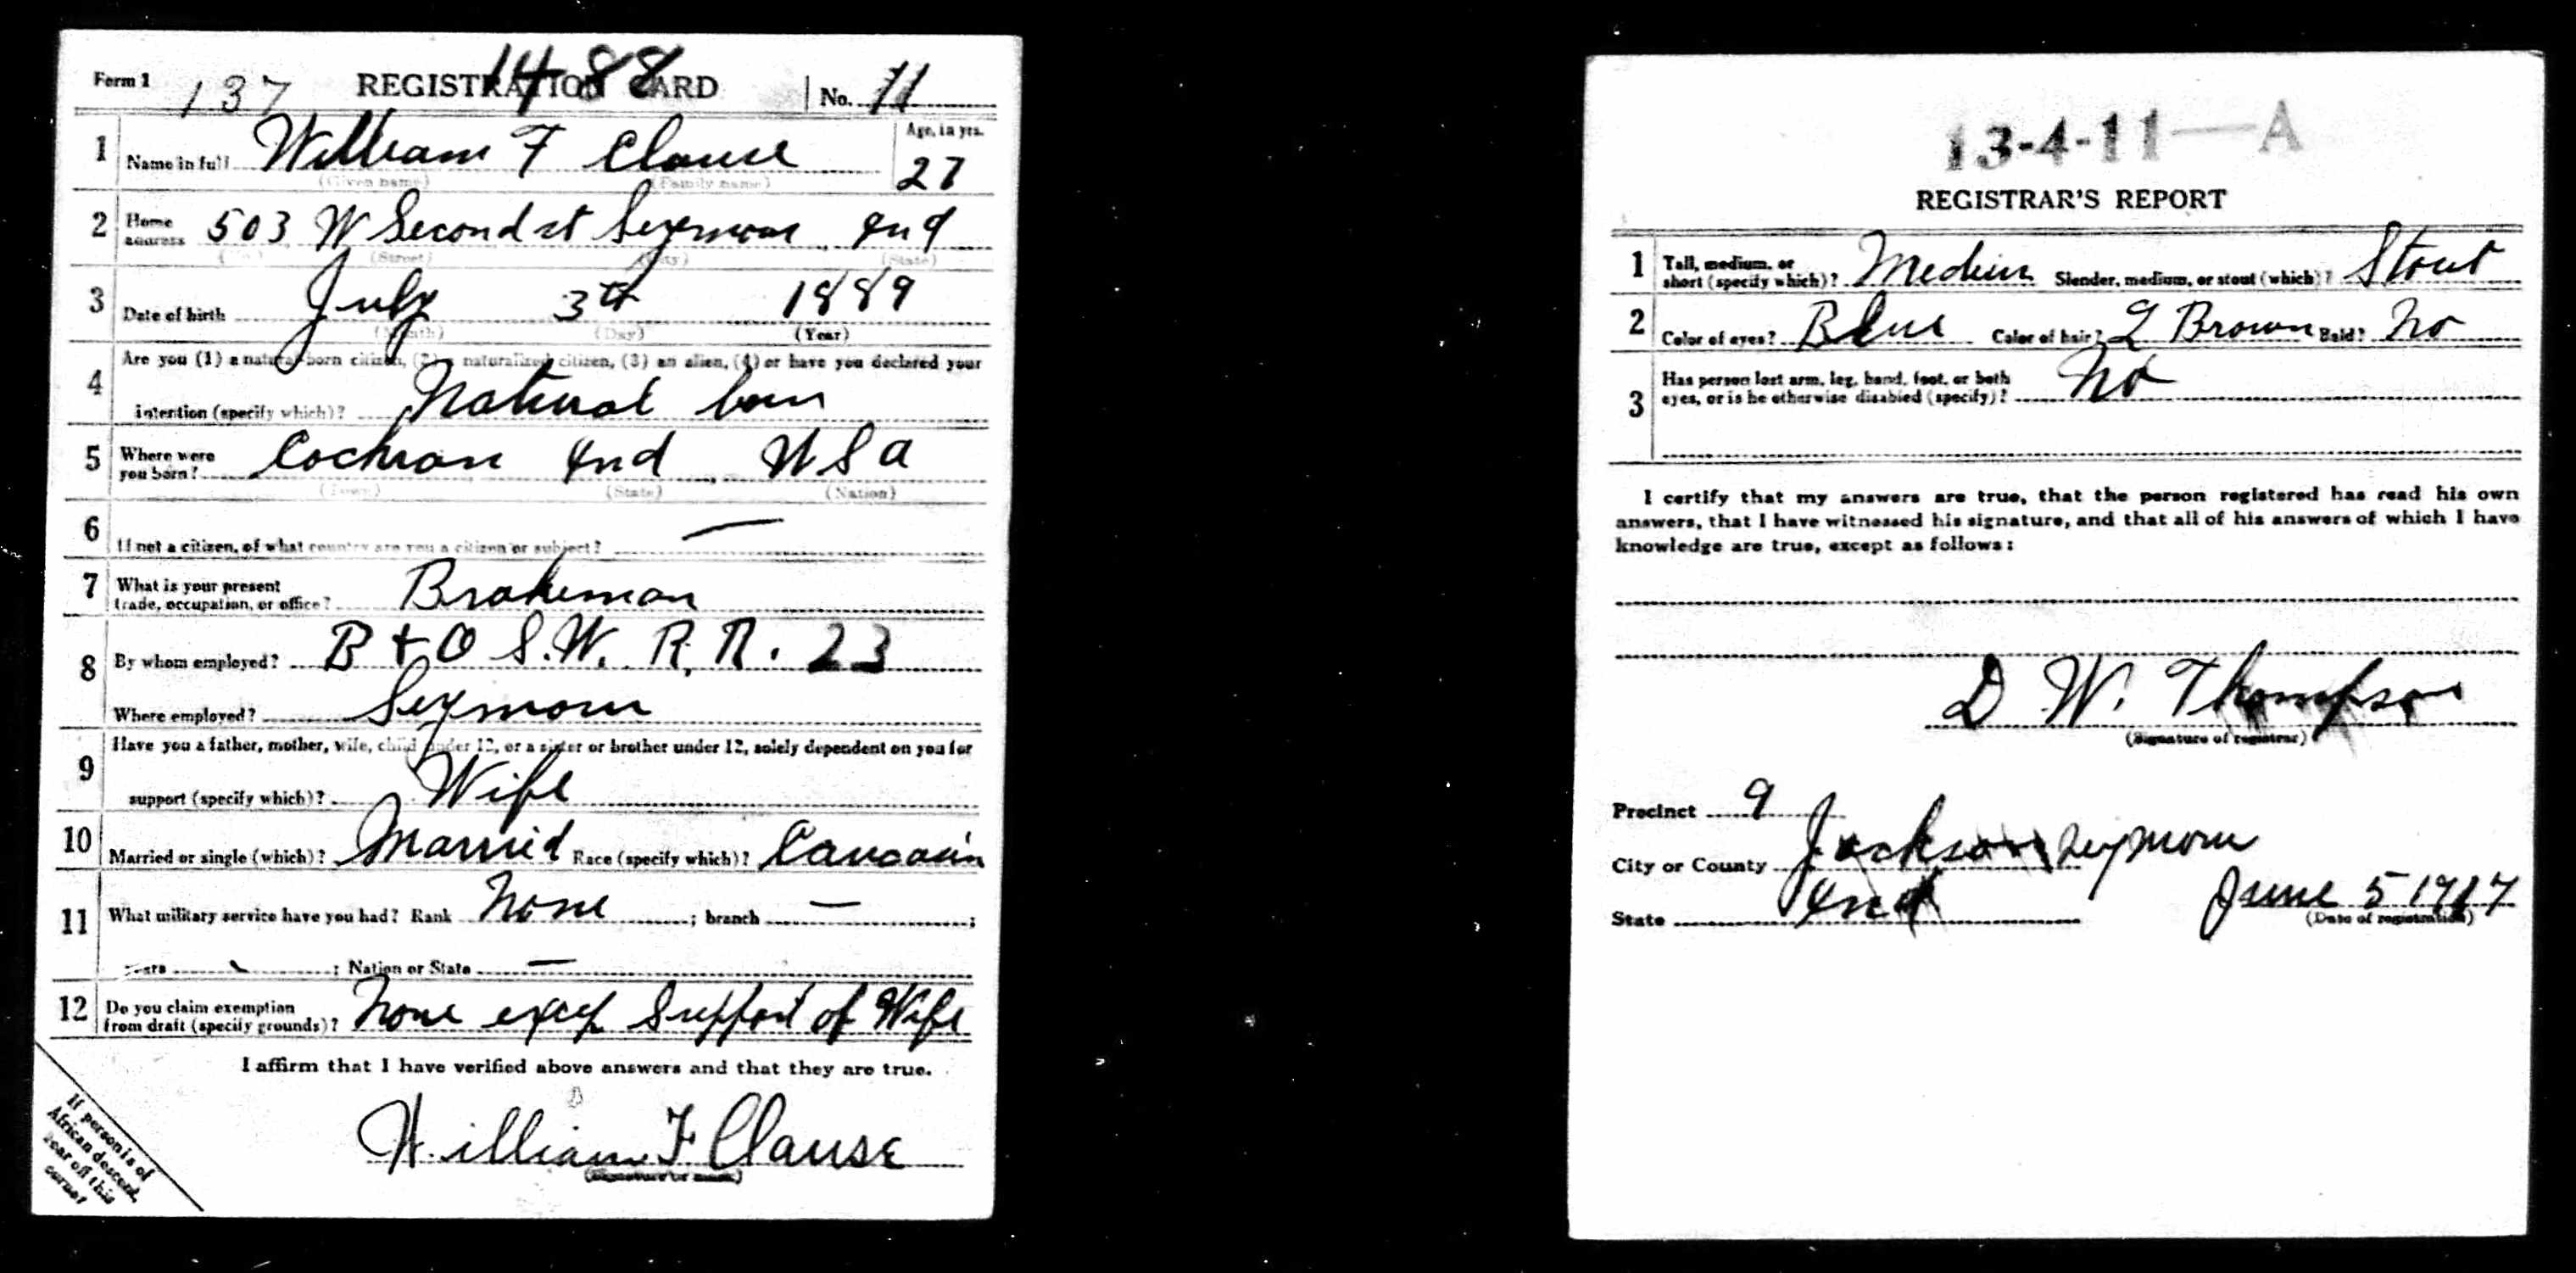 Form 1 137 REGISTRATION CARD 1488 No. 11
1 Name in full William F Clause Age, in yrs. 27
(Given name) (Family name)
2 Home address 503 W Second st Seymour Ind
(No.) (Street) (City) (State)
3 Date of birth July 3th 1889
(Month) (Day) (Year)
4 Are you (1) a natural-born citizen, (2) a naturalized citizen, (3) an alien, (4) or have you declared your
intention (specify which)? Natural born
5 Where were you born? Cochran Ind USA
(Town) (State) (Nation)
6 If not a citizen, of what country are you a citizen or subject? —
7 What is your present trade, occupation, or office? Brakeman
8 By whom employed? B + O S.W. R.R. 23
Where employed? Seymour
9 Have you a father, mother, wife, child under 12, or a sister or brother under 12, solely dependent on you for
support (specify which)? Wife
10 Married or single (which)? Married Race (specify which)?
11 What military service have you had? Rank None ; branch — ;
years ; Nation or State —
12 Do you claim exemption from draft (specify grounds)? None excep Support of Wife
I affirm that I have verified above answers and that they are true.
William F Clause
(Signature or mark)
If person is of
African descent,
tear off this
corner
13-4-11—A
REGISTRAR'S REPORT
1 Tall, medium, or short (specify which)? Medium Slender, medium, or stout (which)? Stout
2 Color of eyes? Blue Color of hair? L Brown Bald? No
3 Has person lost arm, leg, hand, foot, or both eyes, or is he otherwise disabled (specify)? No
I certify that my answers are true, that the person registered has read his own
answers, that I have witnessed his signature, and that all of his answers of which I have
knowledge are true, except as follows:
D W. Thompson
(Signature of registrar)
Precinct 9
City or County Jackson Seymour
State Ind June 5 1917
(Date of registration)